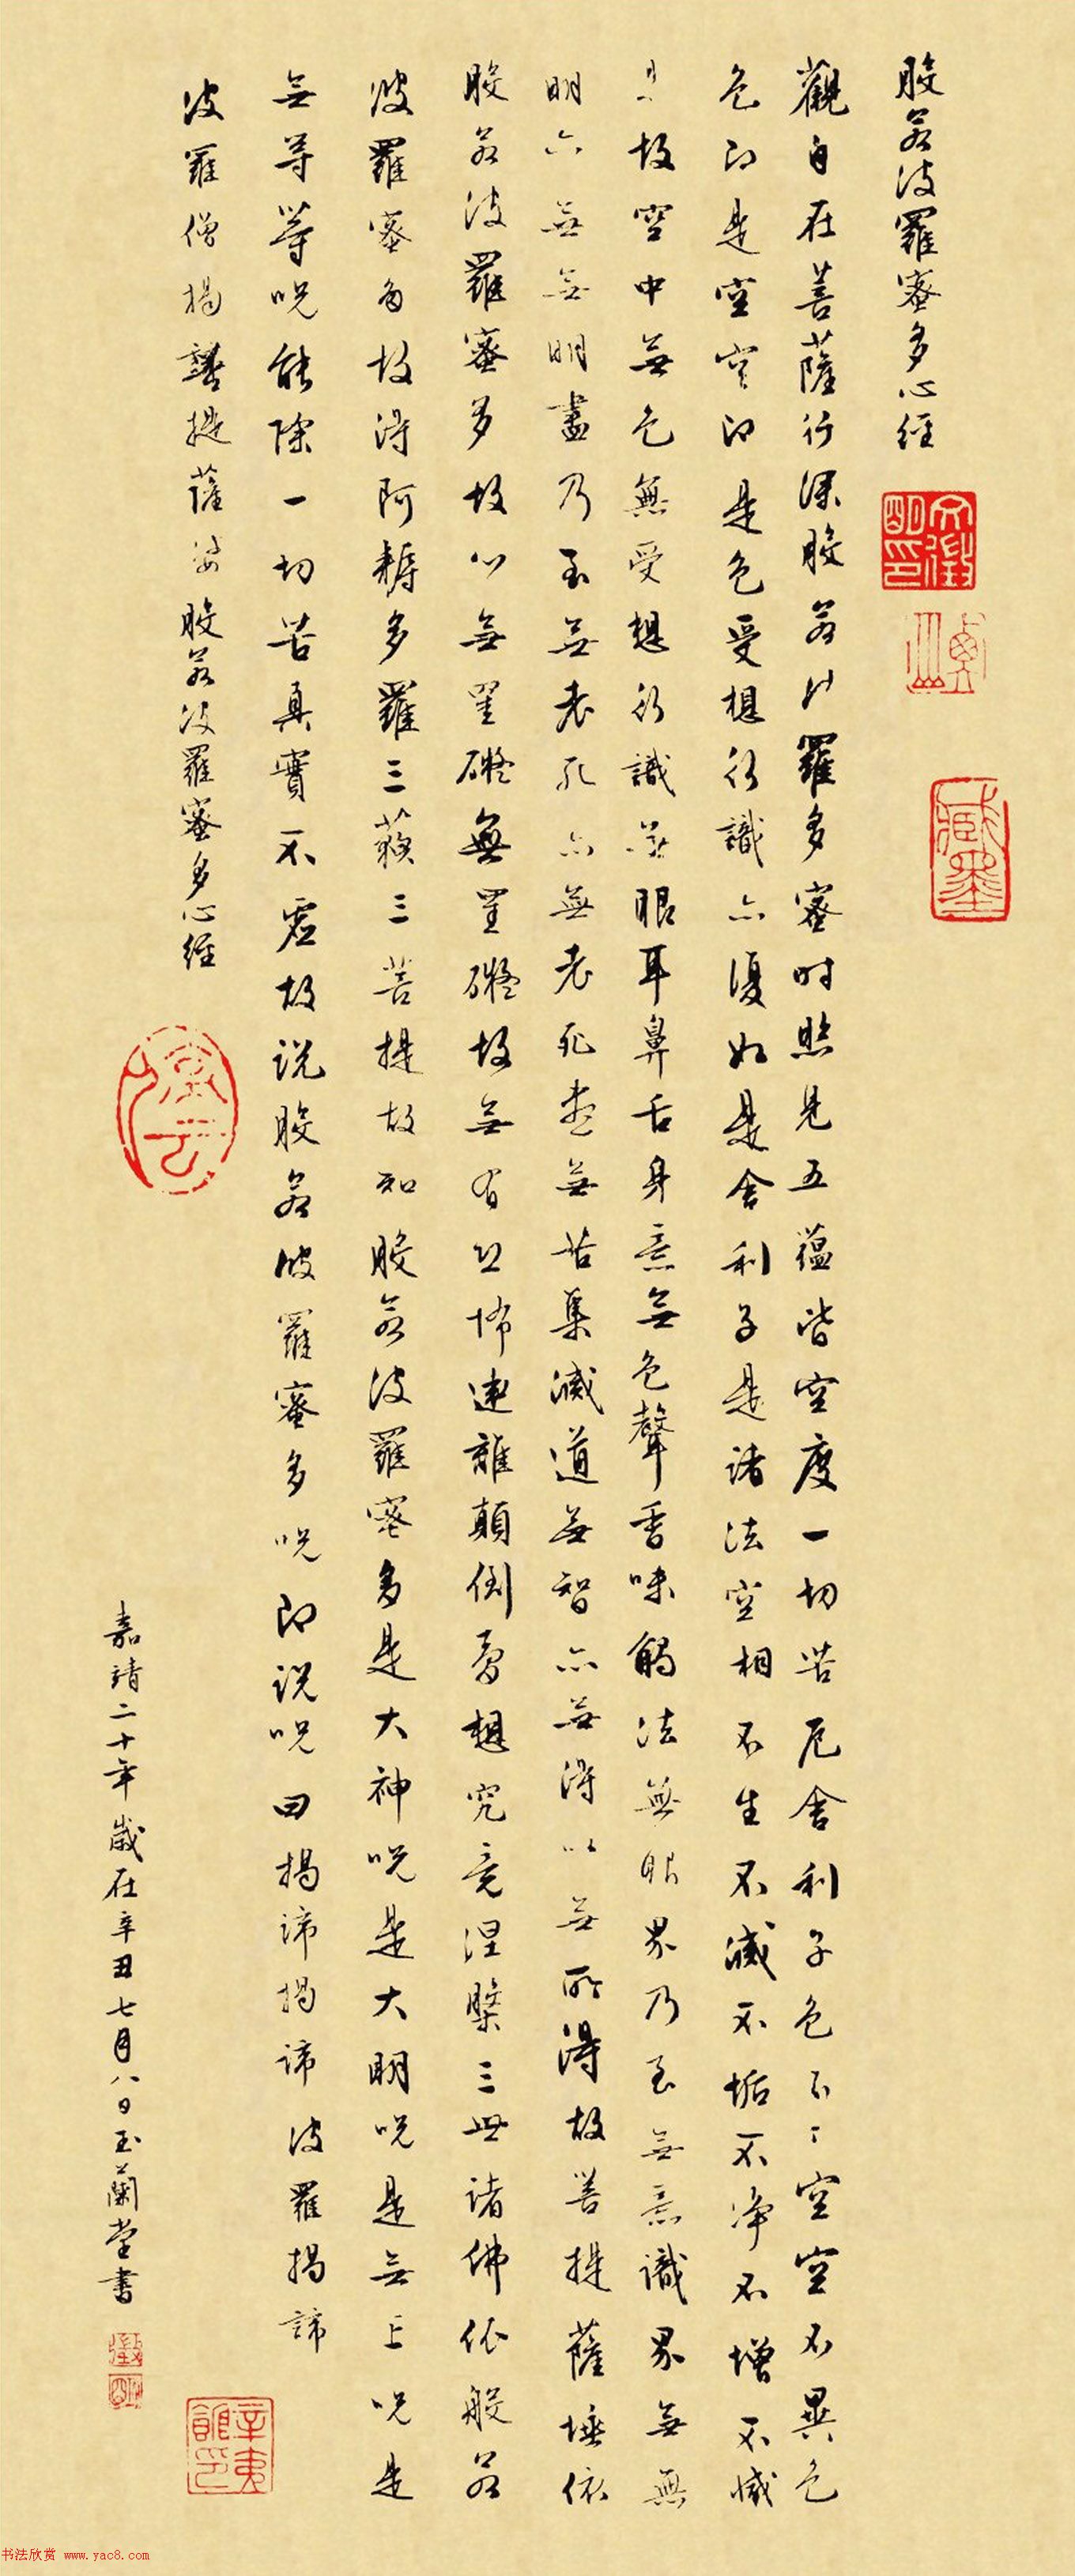 般若波羅蜜多心經
觀自在菩薩行深般若波羅多蜜時照見五蘊皆空度一切苦厄舍利子色不〻空空不異色
色即是空空即是色受想行識亦復如是舍利子是諸法空相不生不滅不垢不淨不增不減
是故空中無色無受想行識無眼耳鼻舌身意無色聲香味觸法無眼界乃至無意識界無無
明亦無無明盡乃至無老死亦無老死盡無苦集滅道無智亦無得以無所得故菩提薩埵依
般若波羅蜜多故心無罣礙無罣礙故無有恐怖遠離顛倒夢想究竟涅槃三世諸佛依般若
波羅蜜多故得阿耨多羅三藐三菩提故知般若波羅蜜多是大神咒是大明咒是無上咒是
無等等咒能除一切苦真實不虛故說般若波羅蜜多咒即說咒曰揭諦揭諦波羅揭諦
波羅僧揭諦菩提薩婆般若波羅蜜多心經
嘉靖二十年歲在辛丑七月八日玉蘭堂書
書法欣赏 www.yac8.com